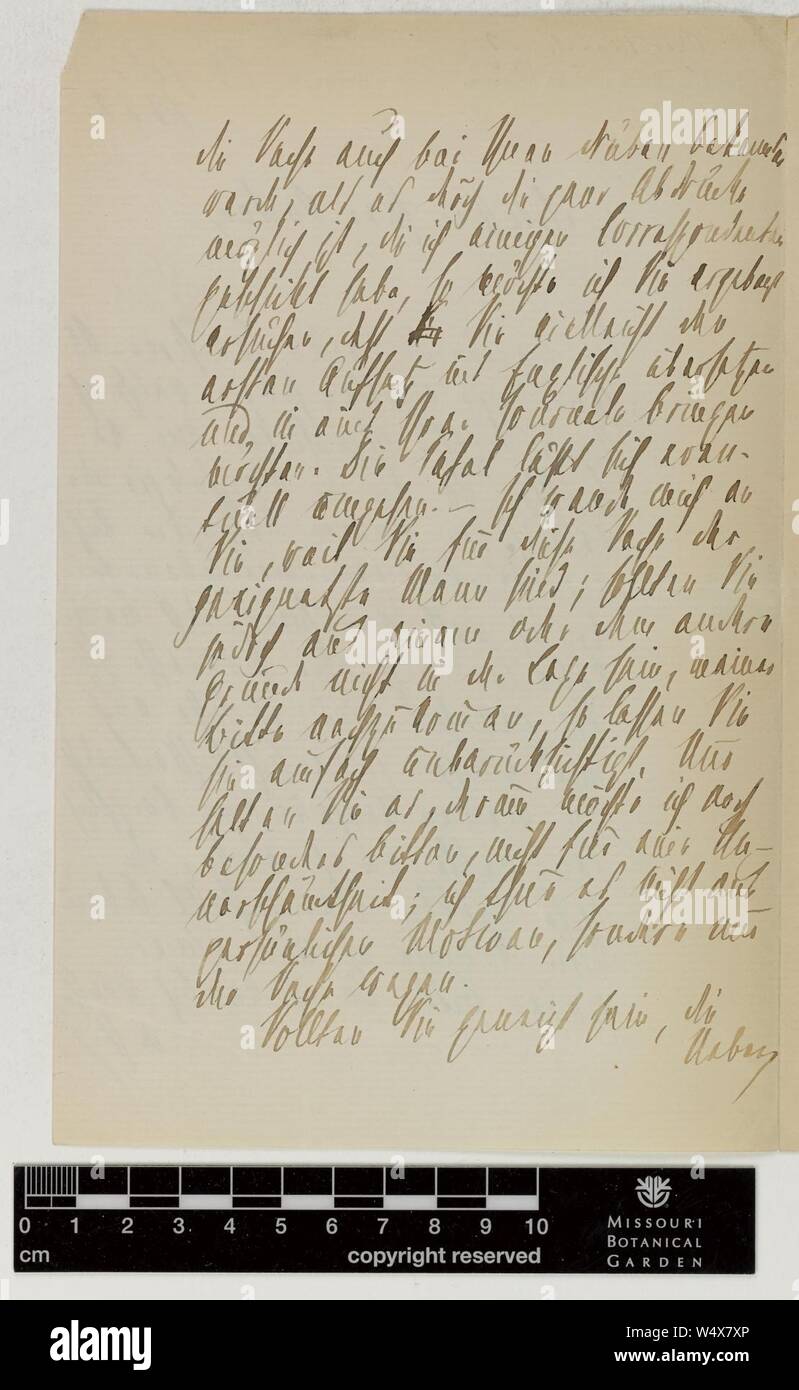 die Sache auch bei Ihnen drüben bekannter
werde, als es durch die paar Abdrücke
möglich ist, die ich einigen Correspondenten
geschickt habe, so möchte ich Sie ergebenst
ersuchen, daß Sie vielleicht den
ersten Aufsatz ins Englische übersetzen
und in eines Ihrer Journale bringen
möchten. Die Tafel läßt sich even-
tuell umgehen. – Ich wende mich an
Sie, weil Sie für diese Sache der
geeignetste Mann sind; sollten Sie
jedoch aus einem oder dem andern
Grunde nicht in der Lage sein, meiner
Bitte nachzukommen, so lassen Sie
sie einfach unberücksichtigt. Nur
halten Sie es, darum möchte ich noch
besonders bitten, nicht für eine Un-
verschämtheit; ich thue es nicht aus
persönlichen Motiven, sondern nur
der Sache wegen.
Sollten Sie geneigt sein, die
Ueber
0 1 2 3 4 5 6 7 8 9 10
cm
copyright reserved
MISSOURI
BOTANICAL
GARDEN
a
alamy
alamy stock photo
W4X7XP
www.alamy.com